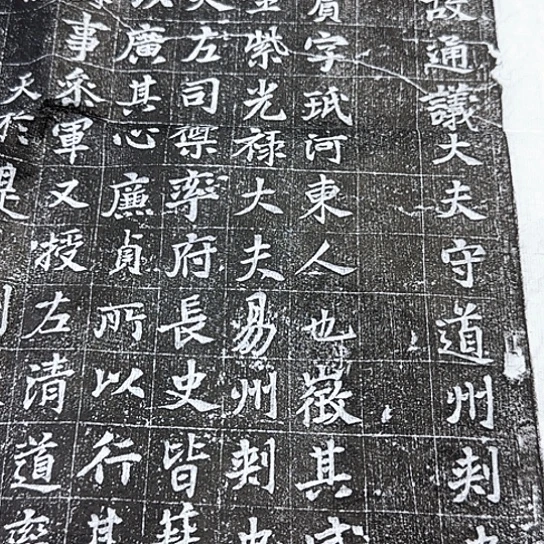 故通議大夫守道州刺史
賓字珉河東人也徵其
紫光祿大夫易州刺史
大左司禦率府長史皆
以廣其心廉貞所以行其
事叅軍又授左清道率
天於